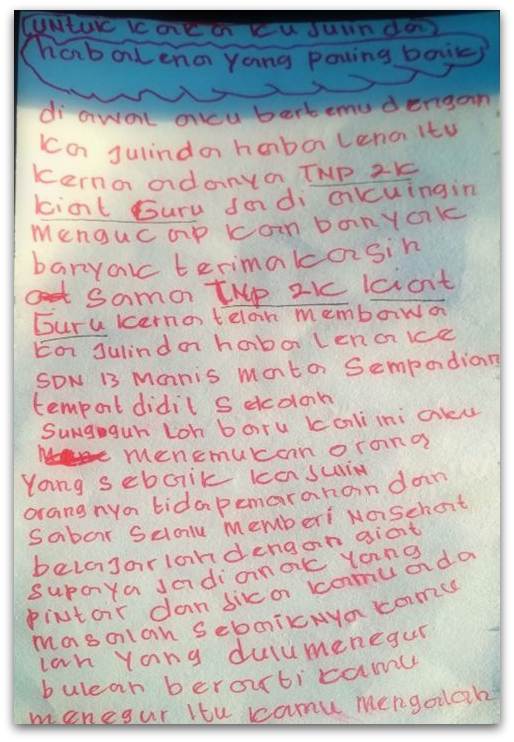 untuk kaka ku Julinda
haba Lena yang paling baik
di awal aku bertemu dengan
ka Julinda haba Lena itu
kerna adanya TNP 2K
kiat Guru Jadi aku ingin
mengucap kan banyak
banyak terima kasih
sama TNP 2K kiat
Guru kerna telah membawa
ka Julinda haba Lena ke
SDN 13 Manis Mata Sempadian
tempat didil Sekolah
Sungguh Loh baru kali ini aku
menemukan orang
yang sebaik ka Julin
orang nya tida pemarahan dan
Sabar Selalu memberi Nasehat
belajar lah dengan giat
supaya Jadi anak yang
pintar dan Jika kamu ada
masalah sebaiknya kamu
lah yang dulu menegur
bukan berarti kamu
menegur itu kamu mengalah